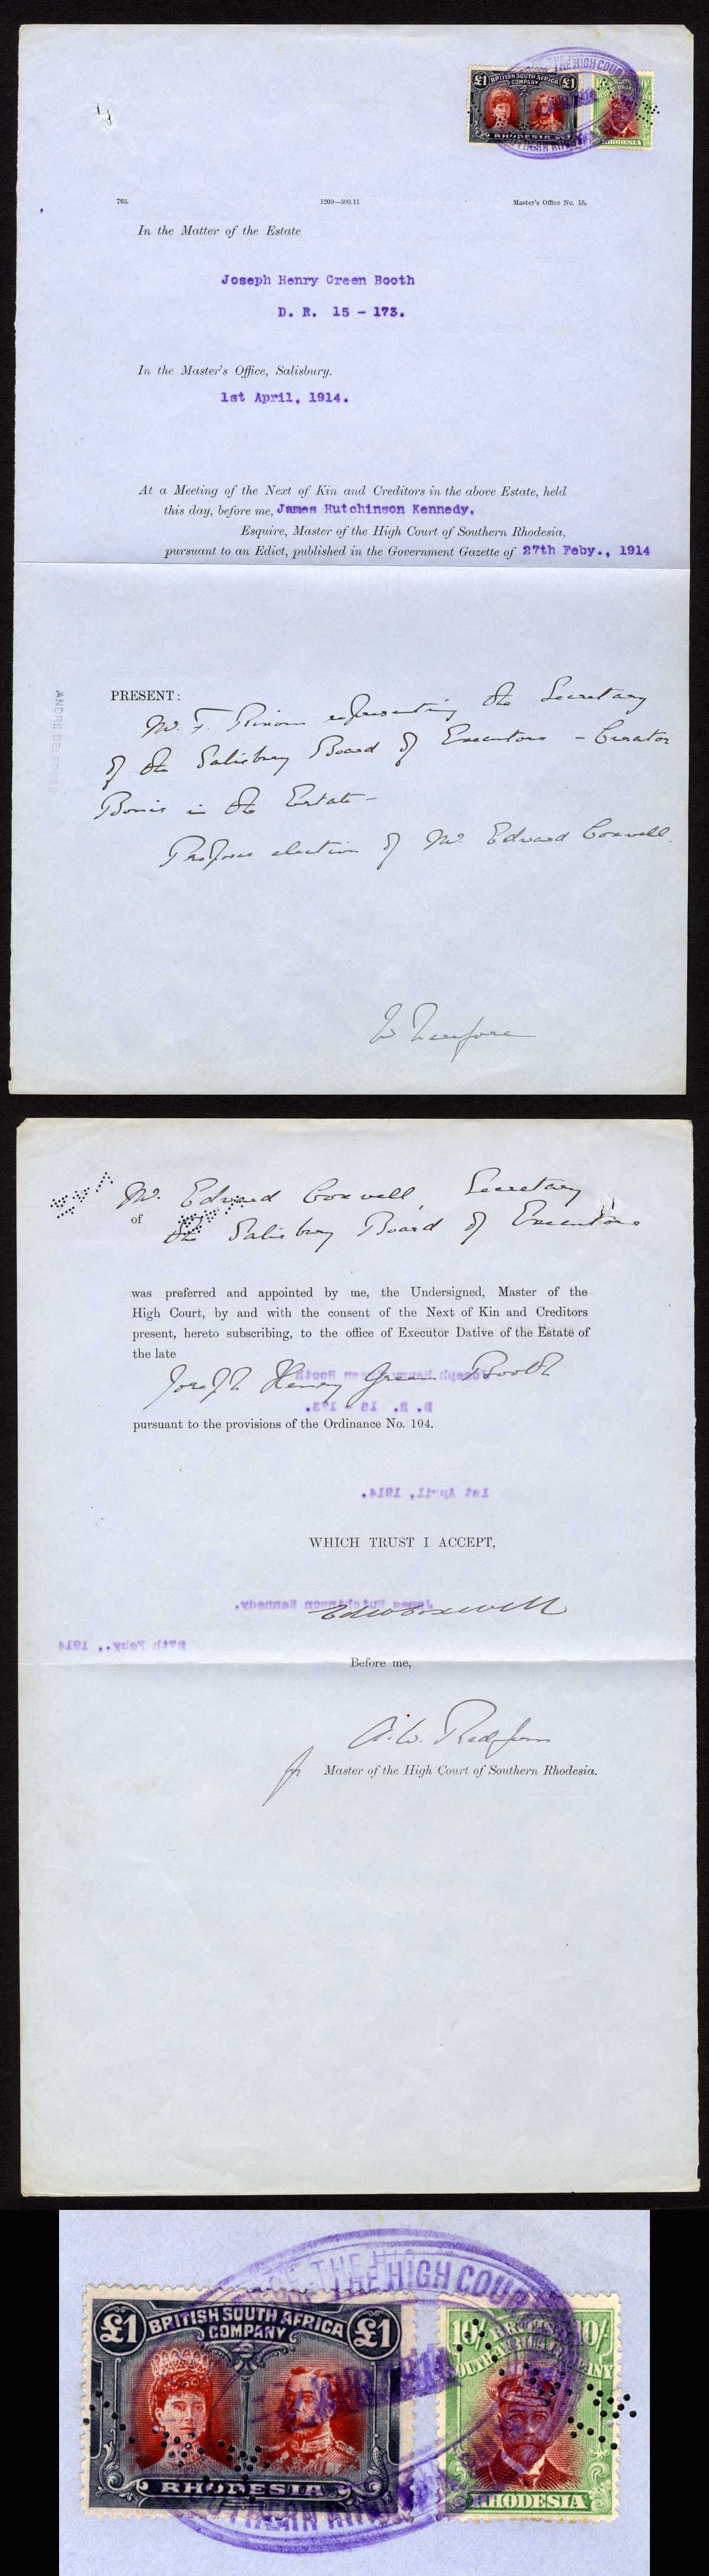 £1 BRITISH SOUTH AFRICA COMPANY £1
RHODESIA
OF THE HIGH COURT
RHODESIA
763. 1209—500.11 Master's Office No. 15.
In the Matter of the Estate
Joseph Henry Green Booth
D. R. 15 - 173.
In the Master's Office, Salisbury.
1st April, 1914.
At a Meeting of the Next of Kin and Creditors in the above Estate, held
this day, before me, James Hutchinson Kennedy,
Esquire, Master of the High Court of Southern Rhodesia,
pursuant to an Edict, published in the Government Gazette of 27th Feby., 1914
ANDRE DELFOSSE
PRESENT:
Mr. F. representing the Secretary
of the Salisbury Board of Executors - Curator
Bonis in the Estate -
Proposes election of Mr. Edward Coxwell.
Wherefore
Mr. Edward Coxwell, Secretary
of the Salisbury Board of Executors
was preferred and appointed by me, the Undersigned, Master of the
High Court, by and with the consent of the Next of Kin and Creditors
present, hereto subscribing, to the office of Executor Dative of the Estate of
the late
Joseph Henry Green Booth
pursuant to the provisions of the Ordinance No. 104.
WHICH TRUST I ACCEPT,
Edw Coxwell
Before me,
A. W. Redfern
for Master of the High Court of Southern Rhodesia.
OF THE HIGH COURT
£1 BRITISH SOUTH AFRICA COMPANY £1
RHODESIA
10/- BRITISH 10/-
SOUTH AFRICA COMPANY
RHODESIA
SOUTHERN